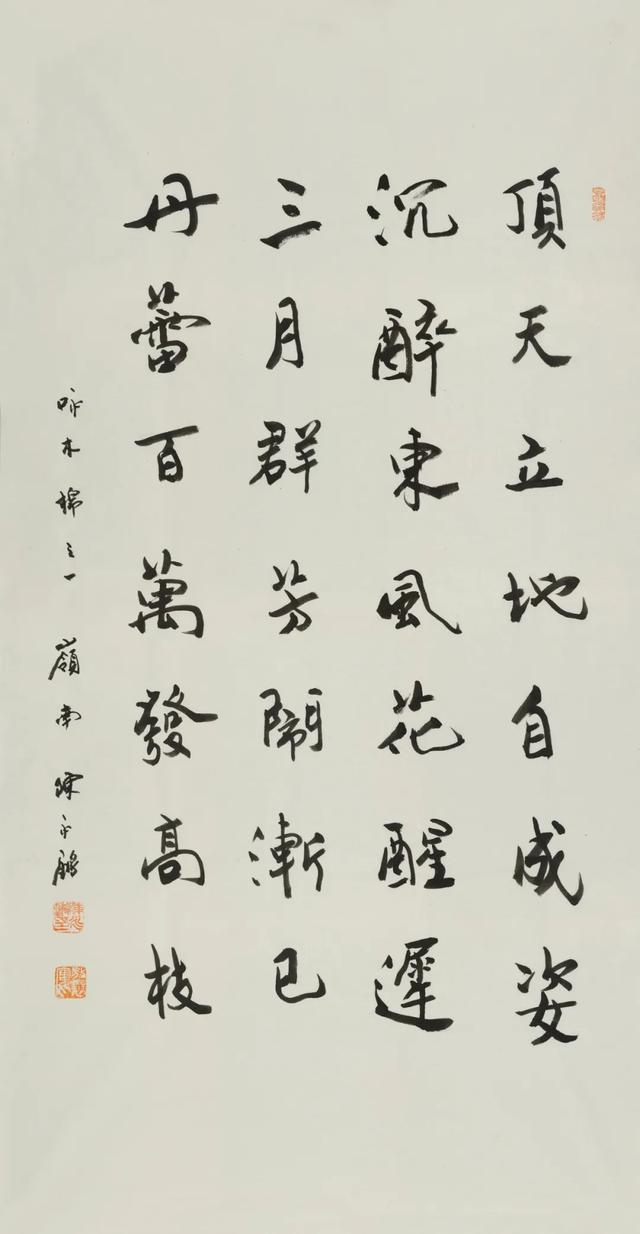 頂天立地自成姿
沉醉東風花醒遲
三月群芳鬧漸已
丹蕾百萬發高枝
咏木棉之一 嶺南 陳